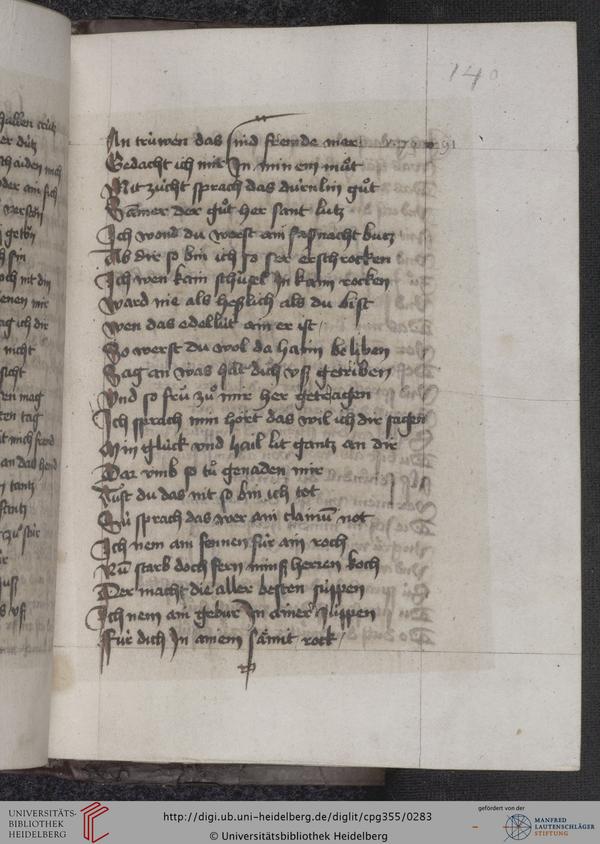 140
An trüwen das sind fremde mer
Gedacht ich mir In minem müt
Mit zücht sprach das dürnlin güt
Samer der güt her sant lutz
Ich wond du werst ain fassnacht butz
Ab dir so bin ich so ser erschrocken
Ich wen kain schüsel In kain rocken
Ward nie als hesslich als du bist
wen das edellüt ain er ist
So werst du wol da haim beliben
Sag an was hat dich uss getriben
Vnd so frü zu mir her getragen
Ich sprach min hort das wil ich dir sagen
Min glück vnd hail lit gantz an dir
Dar vmb so tu genaden mir
Tust du das nit so bin ich tot
Sü sprach das wer ain clainü not
Ich nem ain fennen für ain roch
Nü starb doch fern mins herren koch
Der macht die aller besten süppen
Ich nem ain gebur In ainer Juppen
Für dich In ainem samit rock
UNIVERSITÄTS-
BIBLIOTHEK
HEIDELBERG
http://digi.ub.uni-heidelberg.de/diglit/cpg355/0283
© Universitätsbibliothek Heidelberg
gefördert von der
MANFRED
LAUTENSCHLÄGER
STIFTUNG